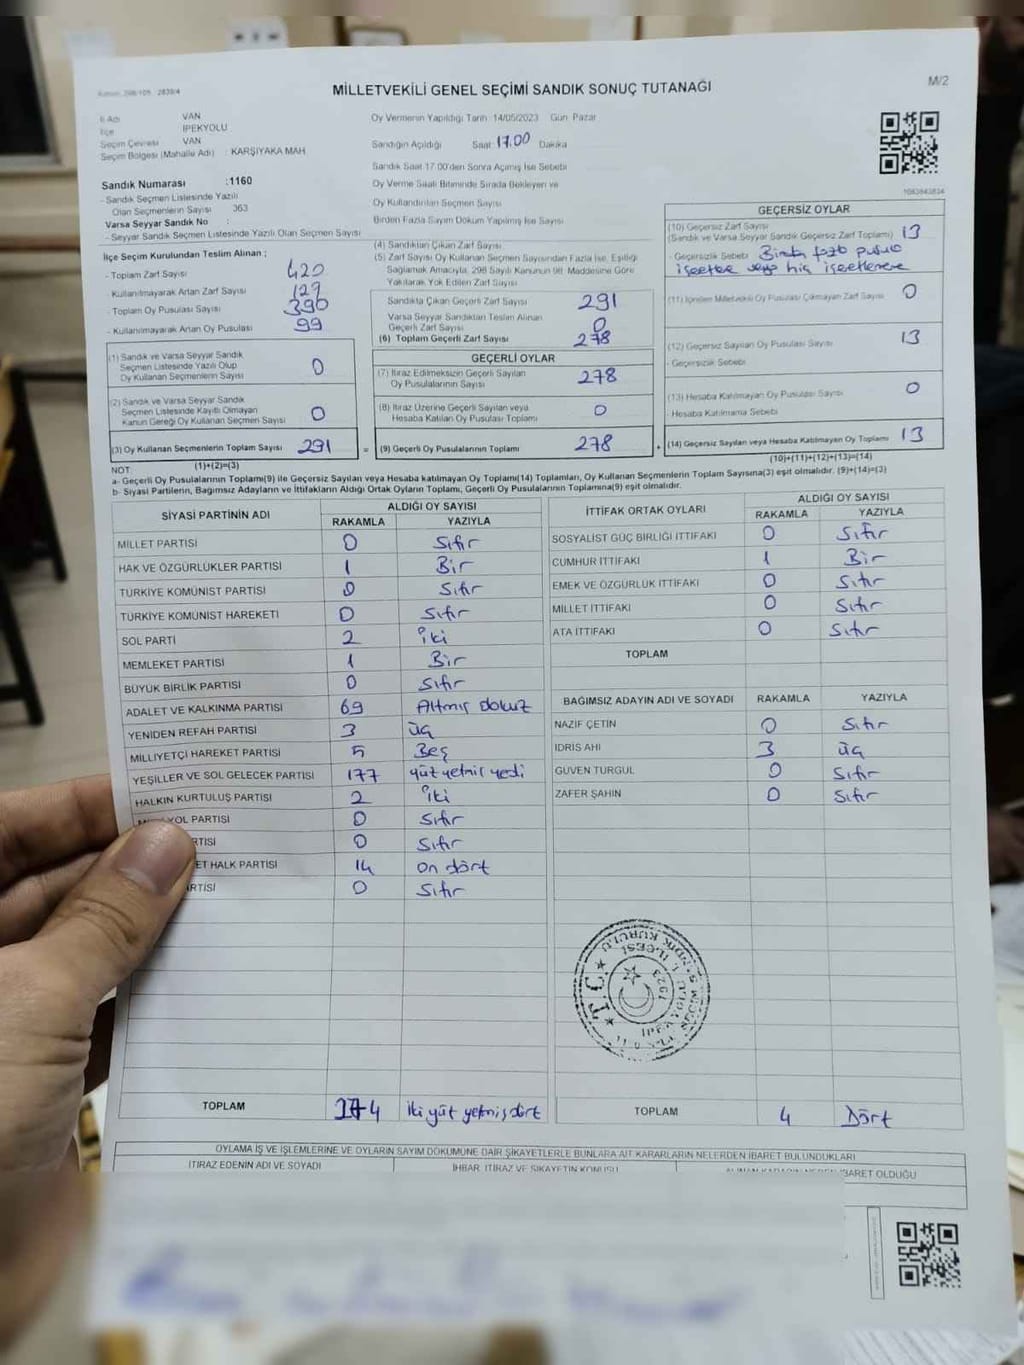 MİLLETVEKİLİ GENEL SEÇİMİ SANDIK SONUÇ TUTANAĞI
M/2
İl Adı VAN
İlçe İPEKYOLU
Seçim Çevresi VAN
Seçim Bölgesi (Mahalle Adı) : KARŞIYAKA MAH
Sandık Numarası :1160
- Sandık Seçmen Listesinde Yazılı
Olan Seçmenlerin Sayısı 363
Varsa Seyyar Sandık No :
- Seyyar Sandık Seçmen Listesinde Yazılı Olan Seçmen Sayısı
İlçe Seçim Kurulundan Teslim Alınan ;
- Toplam Zarf Sayısı 420
- Kullanılmayarak Artan Zarf Sayısı 129
- Toplam Oy Pusulası Sayısı 390
- Kullanılmayarak Artan Oy Pusulası 99
(1) Sandık ve Varsa Seyyar Sandık
Seçmen Listesinde Yazılı Olup
Oy Kullanan Seçmenlerin Sayısı 0
(2) Sandık ve Varsa Seyyar Sandık
Seçmen Listesinde Kayıtlı Olmayan
Kanun Gereği Oy Kullanan Seçmen Sayısı 0
(3) Oy Kullanan Seçmenlerin Toplam Sayısı 291
(1)+(2)=(3)
Oy Vermenin Yapıldığı Tarih: 14/05/2023 Gün: Pazar
Sandığın Açıldığı Saat 17.00 Dakika
Sandık Saat 17.00'den Sonra Açılmış İse Sebebi
Oy Verme Saati Bitiminde Sırada Bekleyen ve
Oy Kullandırılan Seçmen Sayısı
Birden Fazla Sayım Döküm Yapılmış İse Sayısı
(4) Sandıktan Çıkan Zarf Sayısı
(5) Zarf Sayısı Oy Kullanan Seçmen Sayısından Fazla İse, Eşitliği
Sağlamak Amacıyla, 298 Sayılı Kanunun 98. Maddesine Göre
Yakılarak Yok Edilen Zarf Sayısı
Sandıkta Çıkan Geçerli Zarf Sayısı 291
Varsa Seyyar Sandıktan Teslim Alınan
Geçerli Zarf Sayısı 0
(6) Toplam Geçerli Zarf Sayısı 278
GEÇERLİ OYLAR
(7) İtiraz Edilmeksizin Geçerli Sayılan
Oy Pusulalarının Sayısı 278
(8) İtiraz Üzerine Geçerli Sayılan veya
Hesaba Katılan Oy Pusulası Toplamı 0
= (9) Geçerli Oy Pusulalarının Toplamı 278
GEÇERSİZ OYLAR
(10) Geçersiz Zarf Sayısı
(Sandık ve Varsa Seyyar Sandık Geçersiz Zarf Toplamı) 13
- Geçersizlik Sebebi
(11) İçinden Milletvekili Oy Pusulası Çıkmayan Zarf Sayısı 0
(12) Geçersiz Sayılan Oy Pusulası Sayısı 13
- Geçersizlik Sebebi
(13) Hesaba Katılmayan Oy Pusulası Sayısı 0
- Hesaba Katılmama Sebebi
+ (14) Geçersiz Sayılan veya Hesaba Katılmayan Oy Toplamı 13
(10)+(11)+(12)+(13)=(14)
NOT:
a- Geçerli Oy Pusulalarının Toplamı(9) ile Geçersiz Sayılan veya Hesaba katılmayan Oy Toplamı(14) Toplamları, Oy Kullanan Seçmenlerin Toplam Sayısına(3) eşit olmalıdır. (9)+(14)=(3)
b- Siyasi Partilerin, Bağımsız Adayların ve İttifakların Aldığı Ortak Oyların Toplamı, Geçerli Oy Pusulalarının Toplamına(9) eşit olmalıdır.
SİYASİ PARTİNİN ADI ALDIĞI OY SAYISI
RAKAMLA YAZIYLA
MİLLET PARTİSİ 0 Sıfır
HAK VE ÖZGÜRLÜKLER PARTİSİ 1 Bir
TÜRKİYE KOMÜNİST PARTİSİ 0 Sıfır
TÜRKİYE KOMÜNİST HAREKETİ 0 Sıfır
SOL PARTİ 2 iki
MEMLEKET PARTİSİ 1 Bir
BÜYÜK BİRLİK PARTİSİ 0 Sıfır
ADALET VE KALKINMA PARTİSİ 69 Altmış dokuz
YENİDEN REFAH PARTİSİ 3 üç
MİLLİYETÇİ HAREKET PARTİSİ 5 Beş
YEŞİLLER VE SOL GELECEK PARTİSİ 177 yüz yetmiş yedi
HALKIN KURTULUŞ PARTİSİ 2 iki
YOL PARTİSİ 0 Sıfır
0 Sıfır
ET HALK PARTİSİ 14 on dört
0 Sıfır
TOPLAM 274 iki yüz yetmiş dört
İTTİFAK ORTAK OYLARI ALDIĞI OY SAYISI
RAKAMLA YAZIYLA
SOSYALİST GÜÇ BİRLİĞİ İTTİFAKI 0 Sıfır
CUMHUR İTTİFAKI 1 Bir
EMEK VE ÖZGÜRLÜK İTTİFAKI 0 Sıfır
MİLLET İTTİFAKI 0 Sıfır
ATA İTTİFAKI 0 Sıfır
TOPLAM
BAĞIMSIZ ADAYIN ADI VE SOYADI RAKAMLA YAZIYLA
NAZİF ÇETİN 0 Sıfır
İDRİS AHİ 3 üç
GÜVEN TURGUL 0 Sıfır
ZAFER ŞAHİN 0 Sıfır
TOPLAM 4 Dört
OYLAMA İŞ VE İŞLEMLERİNE VE OYLARIN SAYIM DÖKÜMÜNE DAİR ŞİKAYETLERLE BUNLARA AİT KARARLARIN NELERDEN İBARET BULUNDUKLARI
İTİRAZ EDENİN ADI VE SOYADI İHBAR, İTİRAZ VE ŞİKAYETİN KONUSU